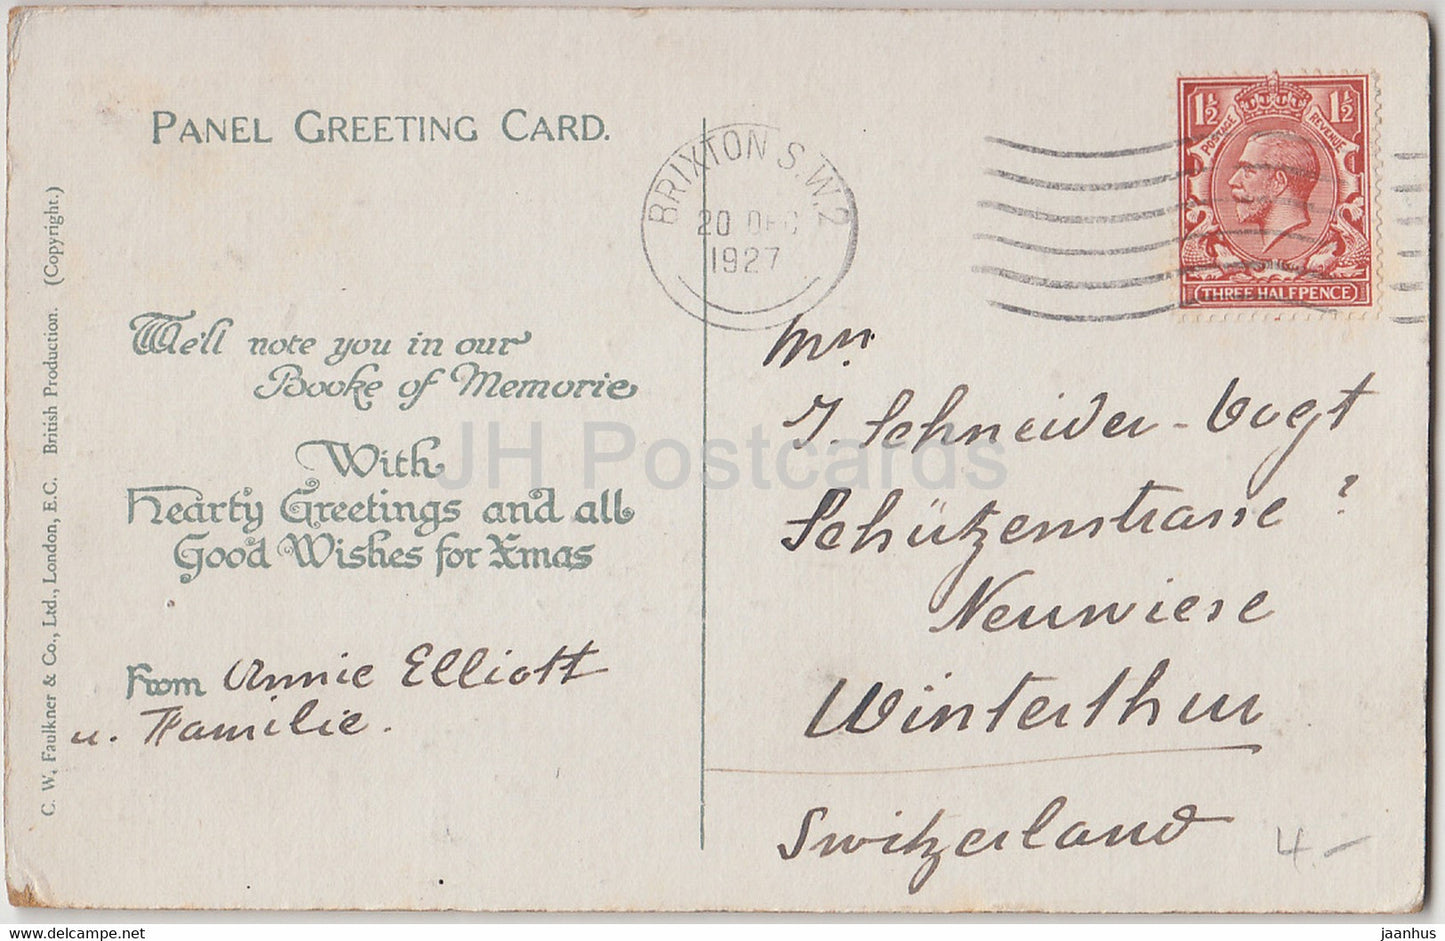 PANEL GREETING CARD.
We'll note you in our
Booke of Memorie
With
Hearty Greetings and all
Good Wishes for Xmas
From Annie Elliott
u. Familie.
C. W. Faulkner & Co., Ltd., London, E.C. British Production. (Copyright.)
BRIXTON S.W.2
20 DEC
1927
1½ 1½
POSTAGE REVENUE
THREE HALFPENCE
J. Schneider-Vogt
Schützenstrasse ?
Neuwiese
Winterthur
Switzerland
4.-
JH Postcards
jaanhus